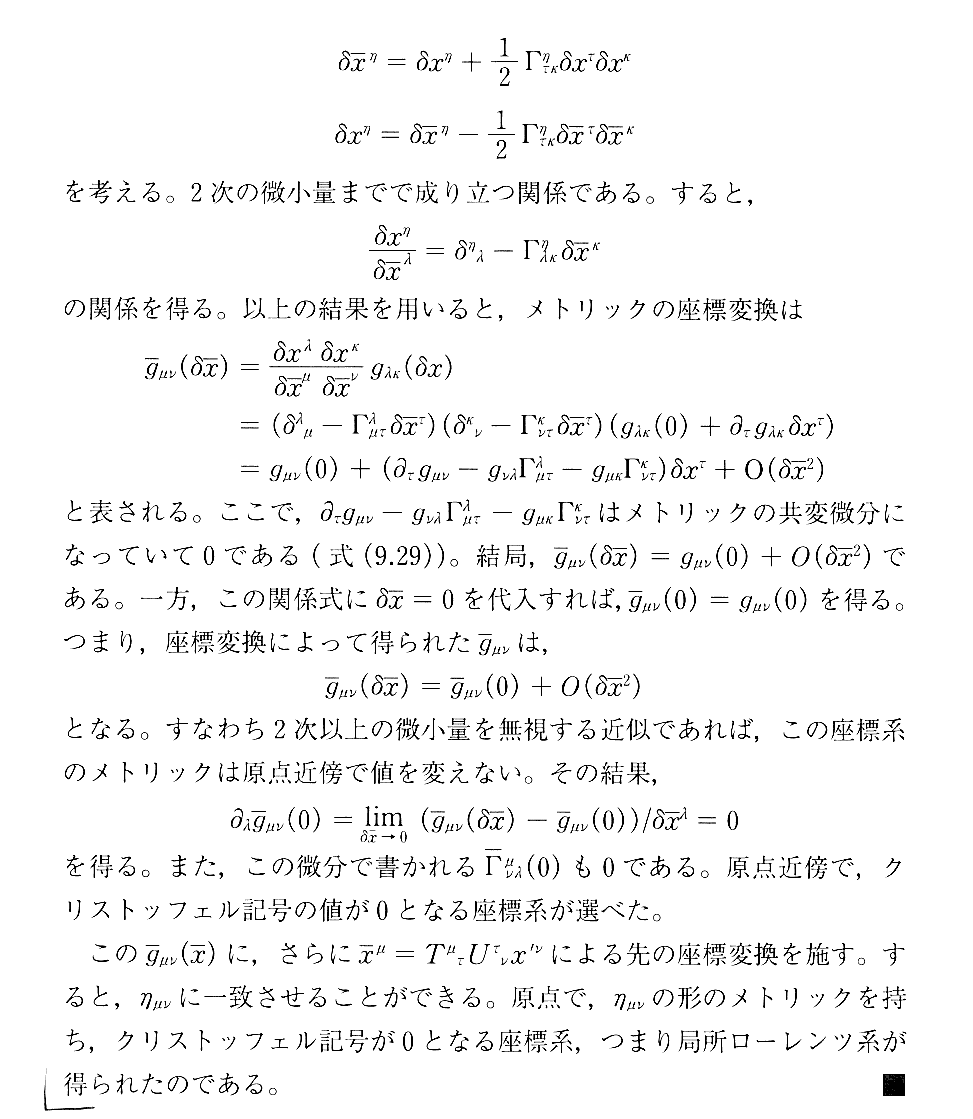 δx̄^η = δx^η + 1/2 Γ^η_{τκ}δx^τδx^κ
δx^η = δx̄^η − 1/2 Γ^η_{τκ}δx̄^τδx̄^κ
を考える。2次の微小量までで成り立つ関係である。すると，
δx^η/δx̄^λ = δ^η_λ − Γ^η_{λκ}δx̄^κ
の関係を得る。以上の結果を用いると，メトリックの座標変換は
ḡ_{μν}(δx̄) = δx^λ/δx̄^μ δx^κ/δx̄^ν g_{λκ}(δx)
= (δ^λ_μ − Γ^λ_{μτ}δx̄^τ)(δ^κ_ν − Γ^κ_{ντ}δx̄^τ)(g_{λκ}(0) + ∂_τg_{λκ}δx^τ)
= g_{μν}(0) + (∂_τg_{μν} − g_{νλ}Γ^λ_{μτ} − g_{μκ}Γ^κ_{ντ})δx^τ + O(δx̄²)
と表される。ここで，∂_τg_{μν} − g_{νλ}Γ^λ_{μτ} − g_{μκ}Γ^κ_{ντ}はメトリックの共変微分に
なっていて0である（式(9.29)）。結局，ḡ_{μν}(δx̄) = g_{μν}(0) + O(δx̄²)で
ある。一方，この関係式にδx̄ = 0を代入すれば，ḡ_{μν}(0) = g_{μν}(0)を得る。
つまり，座標変換によって得られたḡ_{μν}は，
ḡ_{μν}(δx̄) = ḡ_{μν}(0) + O(δx̄²)
となる。すなわち2次以上の微小量を無視する近似であれば，この座標系
のメトリックは原点近傍で値を変えない。その結果，
∂_λḡ_{μν}(0) = lim_{δx̄→0} (ḡ_{μν}(δx̄) − ḡ_{μν}(0))/δx̄^λ = 0
を得る。また，この微分で書かれるΓ̄^μ_{νλ}(0)も0である。原点近傍で，ク
リストッフェル記号の値が0となる座標系が選べた。
このḡ_{μν}(x̄)に，さらにx̄^μ = T^μ_τU^τ_νx'^νによる先の座標変換を施す。す
ると，η_{μν}に一致させることができる。原点で，η_{μν}の形のメトリックを持
ち，クリストッフェル記号が0となる座標系，つまり局所ローレンツ系が
得られたのである。 ■